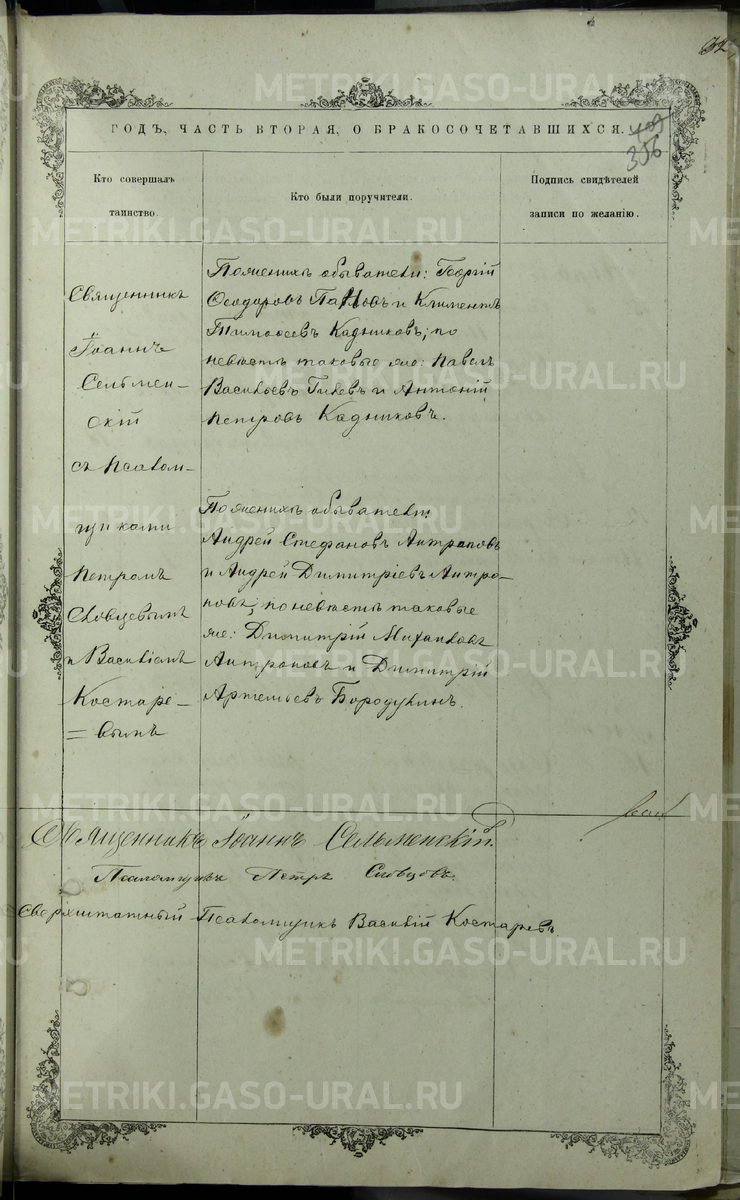 32
ГОДЪ, ЧАСТЬ ВТОРАЯ, О БРАКОСОЧЕТАВШИХСЯ.
409
356
Кто совершалъ
таинство.
Кто были поручители.
Подпись свидѣтелей
записи по желанію.
Священникъ
Іоаннъ
Сельмен-
скій
съ псалом-
щиками
Петромъ
Словцевымъ
и Василіемъ
Костаре-
=вымъ
По женихѣ обыватели: Георгій
Ѳеодоровъ Пановъ и Климентъ
Тимоѳеевъ Кадниковъ; по
невѣстѣ таковые же: Павелъ
Васильевъ Гилевъ и Антоній
Петровъ Кадниковъ.
По женихѣ обыватели:
Андрей Стефановъ Антроповъ
и Андрей Димитріевъ Антро-
повъ; по невѣстѣ таковые
же: Димитрій Михаиловъ
Антроповъ и Димитрій
Артемьевъ Бородулинъ.
Священникъ Іоаннъ Сельменскій.
Псаломщикъ Петръ Словцовъ.
Сверхштатный Псаломщикъ Василій Костаревъ
METRIKI.GASO-URAL.RU